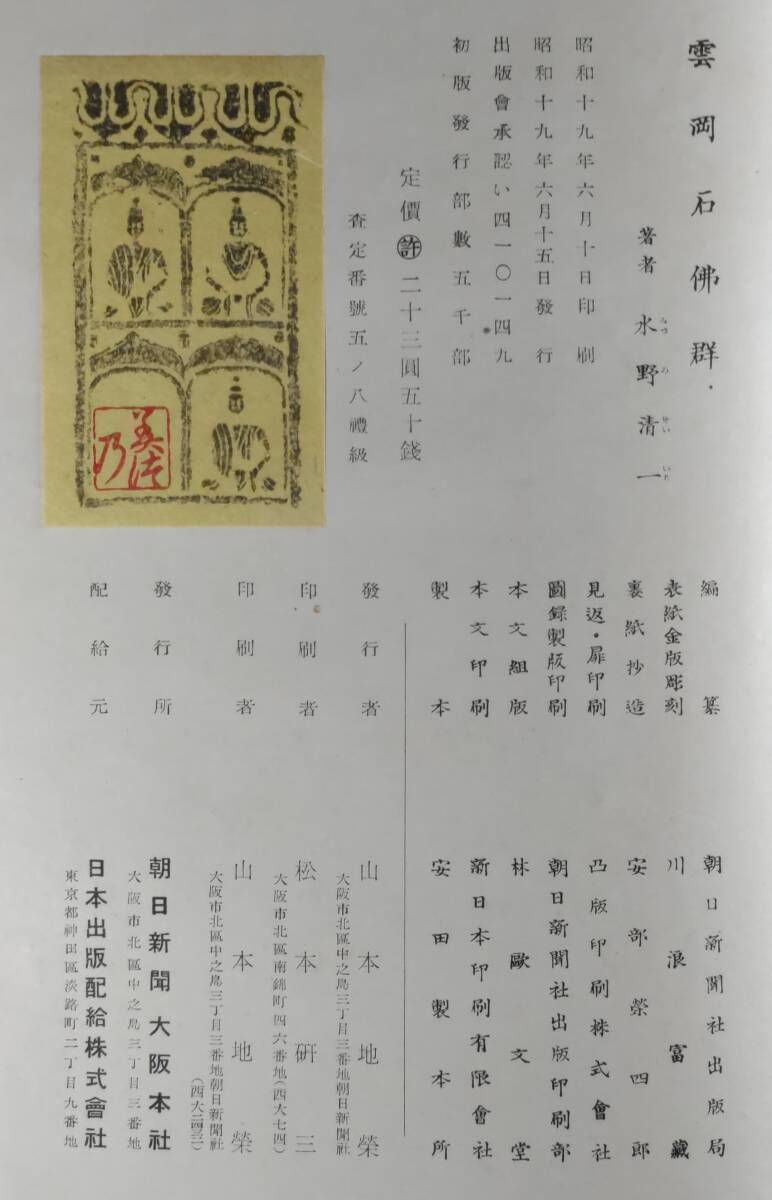 雲岡石佛群
著者 水野清一
みづ の せい いち
昭和十九年六月十日印刷
昭和十九年六月十五日發行
出版會承認い四一〇一四九
初版發行部數五千部
定價㊕二十三圓五十錢
査定番號五ノ八禮級
編纂 朝日新聞社出版局
表紙金版彫刻 川浪富藏
裏紙抄造 安部榮四郎
見返・扉印刷 凸版印刷株式會社
圖錄製版印刷 朝日新聞社出版印刷部
本文組版 林歐文堂
本文印刷 新日本印刷有限會社
製本 安田製本所
發行者 山本地榮
大阪市北區中之島三丁目三番地朝日新聞社
印刷者 松本硏三
大阪市北區南錦町四六番地(西大七四)
印刷者 山本地榮
大阪市北區中之島三丁目三番地朝日新聞社
(西大二四三)
發行所 朝日新聞大阪本社
大阪市北區中之島三丁目三番地
配給元 日本出版配給株式會社
東京都神田區淡路町二丁目九番地